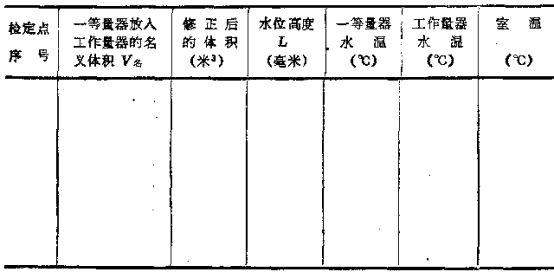 检定点
序号
一等量器放入
工作量器的名
义体积 V名
修正后
的体积
(米³)
水位高度
L
(毫米)
一等量器
水温
(℃)
工作量器
水温
(℃)
室温
(℃)